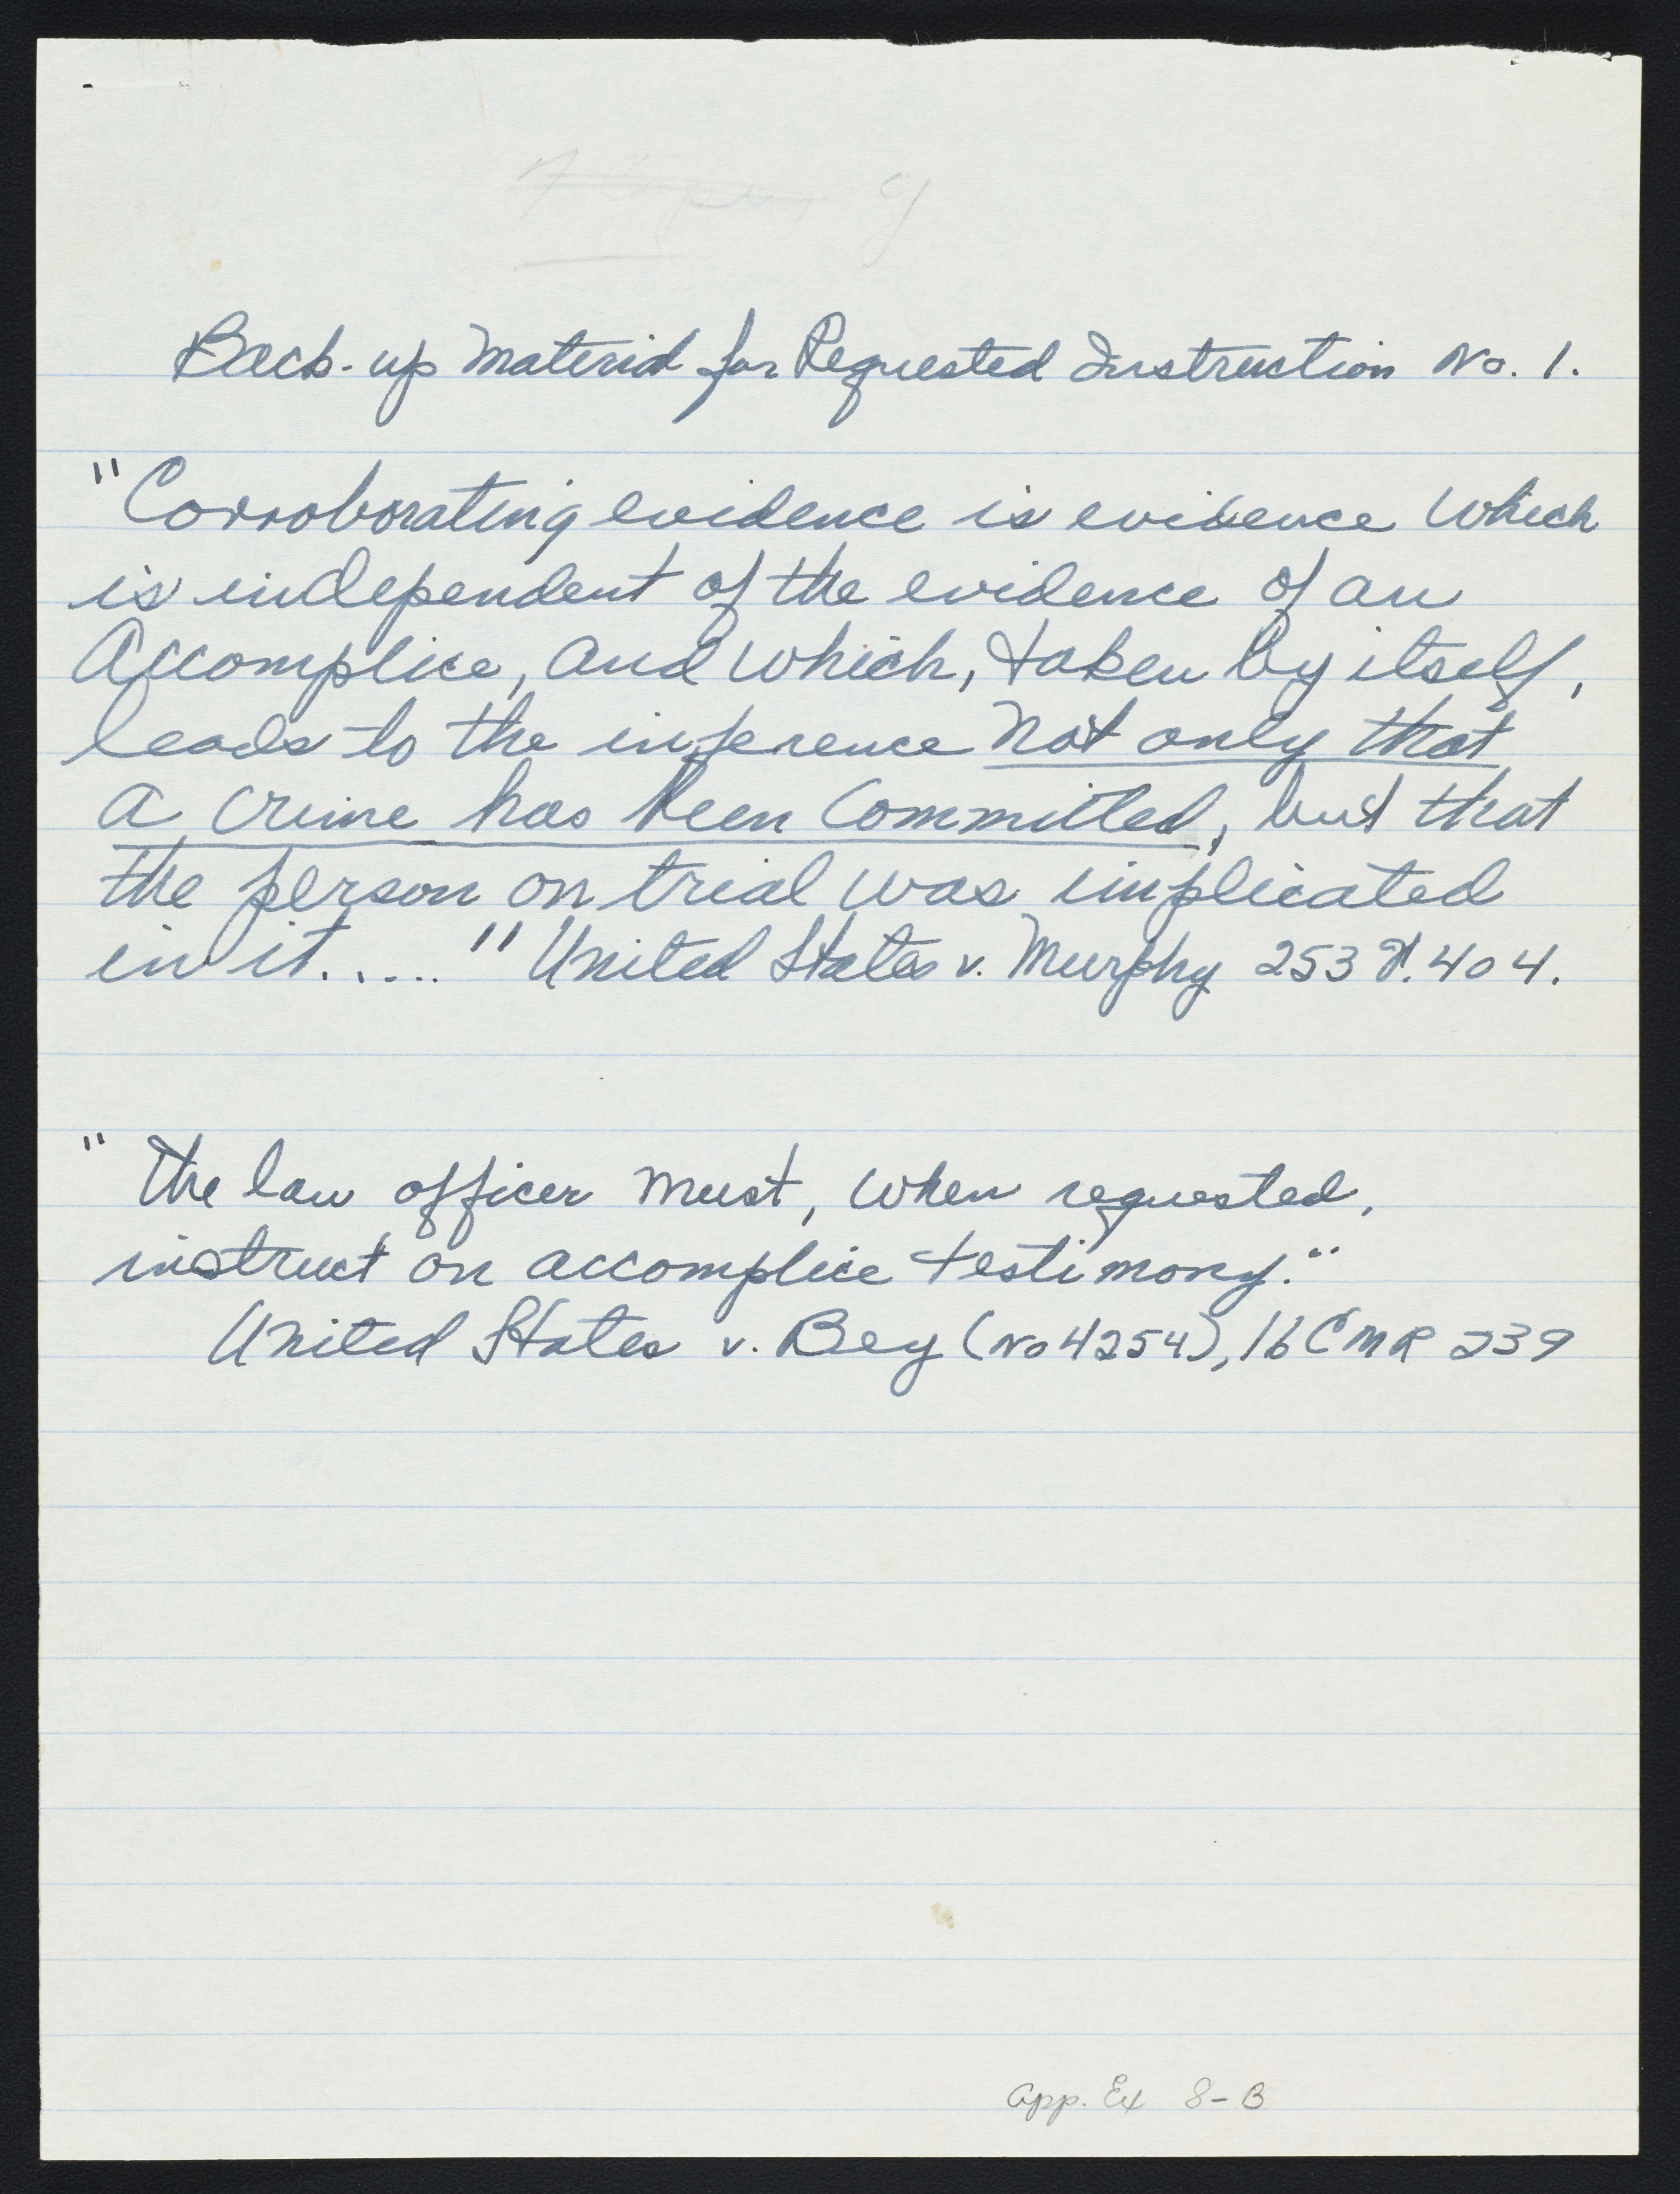 Back-up Material for Requested Instruction No. 1.
"Corroborating evidence is evidence which
is independent of the evidence of an
Accomplice, and which, taken by itself,
leads to the inference not only that
a crime has been committed, but that
the person on trial was implicated
in it....." United States v. Murphy 253 F. 404.
"The law officer must, when requested,
instruct on accomplice testimony."
United States v. Bey (No 4254), 16 CMR 239
App. Ex 8-B